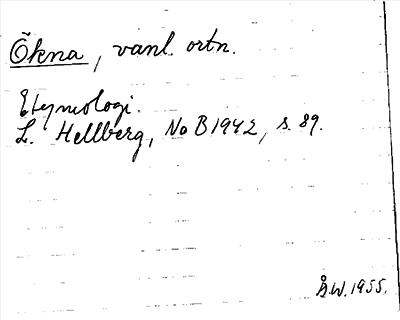 Ökna, vanl. ortn.
Etymologi.
L. Hellberg, NoB 1942, s. 89.
Å.W. 1955.